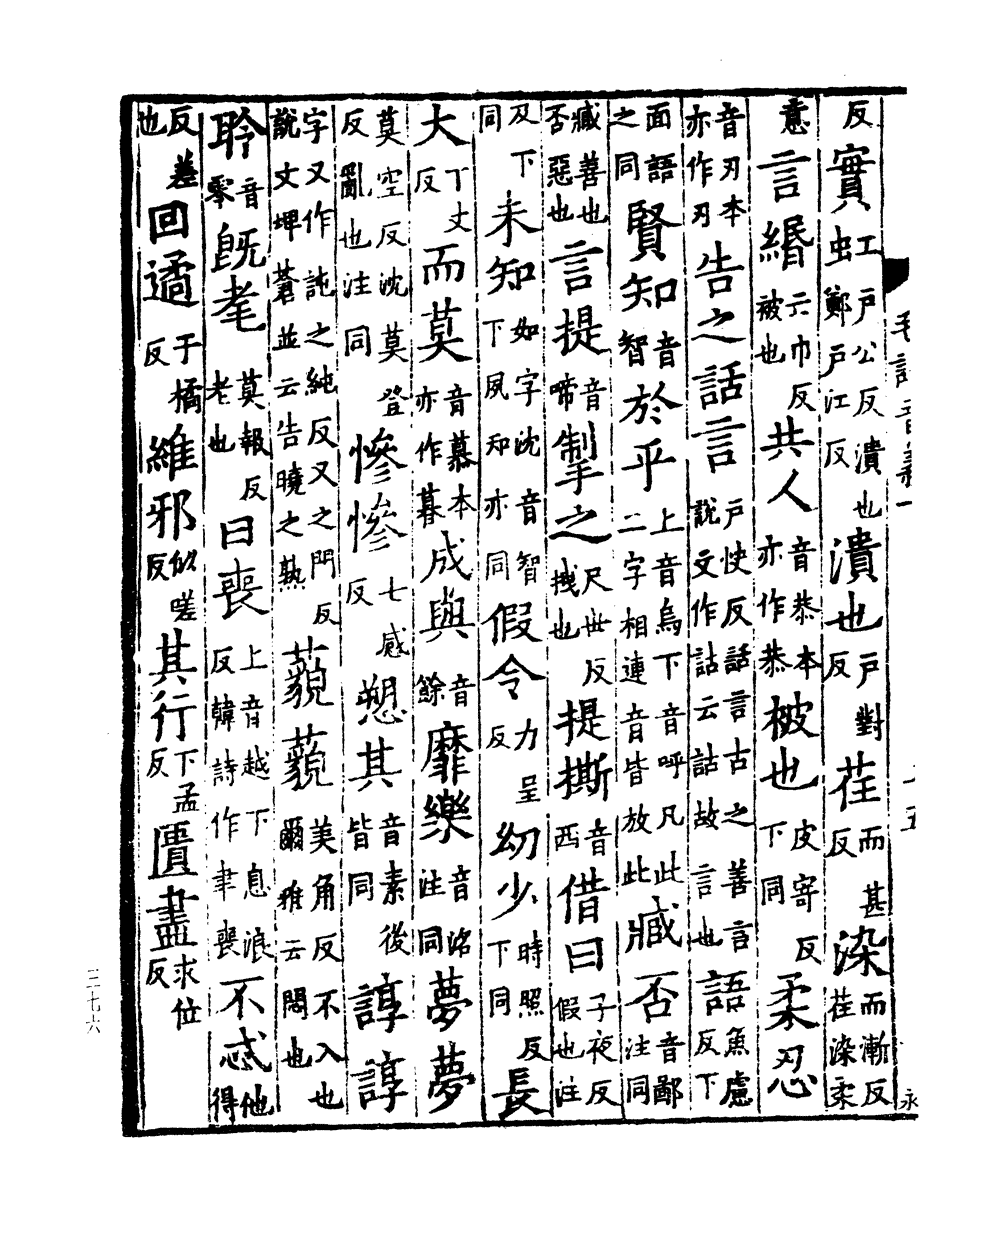 反實虹戶公反潰也鄭戶江反潰也戶對反荏而甚反染而漸反荏染柔
意言緡亡巾反被也共人音恭本亦作恭被也皮寄反下同柔忍
音刃本亦作刃告之話言戶快反話言古之善言也說文作詁云詁故言也語魚慮反下
面語之同賢知音智於乎上音烏下音呼凡此二字相連音皆放此臧否音鄙注同
臧善也否惡也言提音啼掣之尺世反拽也提撕音西借曰子夜反假也注
及下同未知如字沈音智下夙知亦同假令力呈反幼少時照反下同長
大丁丈反而莫音慕本亦作暮成與音餘靡樂音洛注同夢夢
莫空反沈莫登反亂也注同慘慘七感反愬其音素後皆同諄諄
字又作訰之純反又之門反說文埤蒼並云告曉之熟藐藐美角反不入也爾雅云悶也
聆音零既耄莫報反老也曰喪上音越下息浪反韓詩作聿喪不忒他得
反差也回遹于橘反維邪似嗟反其行下孟反匱盡求位反
三七六